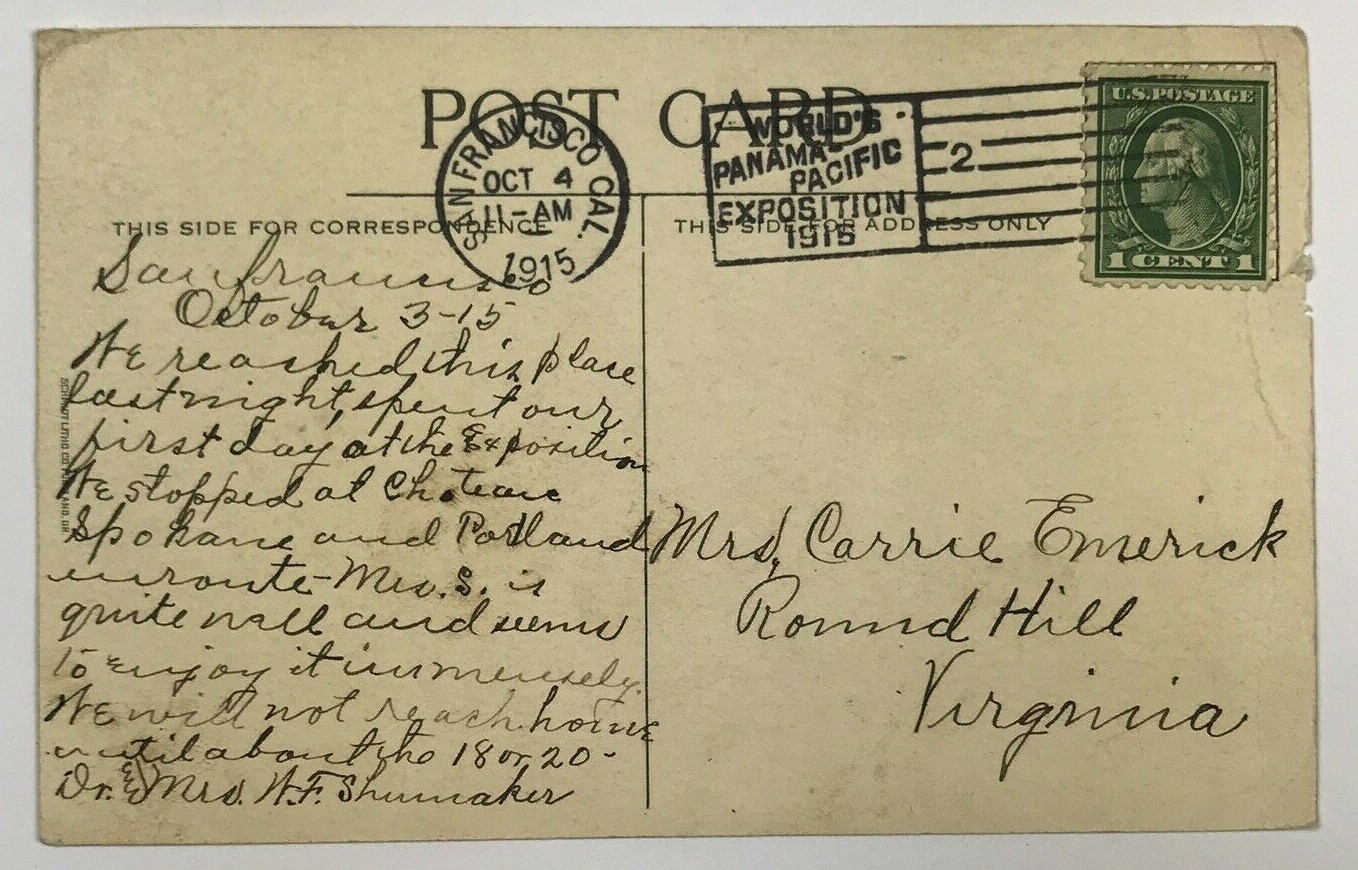 POST CARD
SAN FRANCISCO CAL.
OCT 4
11-AM
1
1915
WORLD'S
PANAMA-
PACIFIC
EXPOSITION
1915
2
U.S. POSTAGE
1 CENT 1
THIS SIDE FOR CORRESPONDENCE
THIS SIDE FOR ADDRESS ONLY
San Francisco
October 3-15
We reached this place
last night, spent our
first day at the Exposition
We stopped at Choteau
Spokane and Portland
enroute - Mrs. S. is
quite well and seems
to enjoy it immensely.
We will not reach home
until about the 18 or 20-
Dr. & Mrs. W.F. Shumaker
Mrs. Carrie Emerick
Round Hill
Virginia